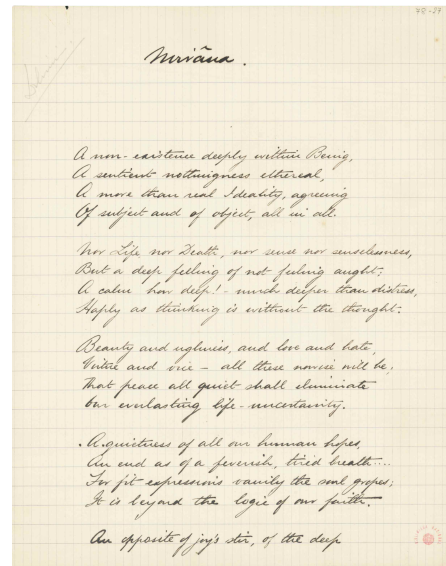 78-57
Nirvâna.
A non-existence deeply within Being,
A sentient nothingness ethereal,
A more than real Ideality, agreeing
Of subject and of object, all in all.
Nor Life nor Death, nor sense nor senselessness,
But a deep feeling of not feeling aught;
A calm how deep! - much deeper than distress,
Haply as thinking is without the thought.
Beauty and ugliness, and love and hate,
Virtue and vice - all these nowise will be;
That peace all quiet shall eliminate
Our everlasting life-uncertainty.
A quietness of all our human hopes,
An end as of a feverish, tired breath....
For fit expressions vainly the soul gropes;
It is beyond the logic of our faith.
An opposite of joy's stir, of the deep